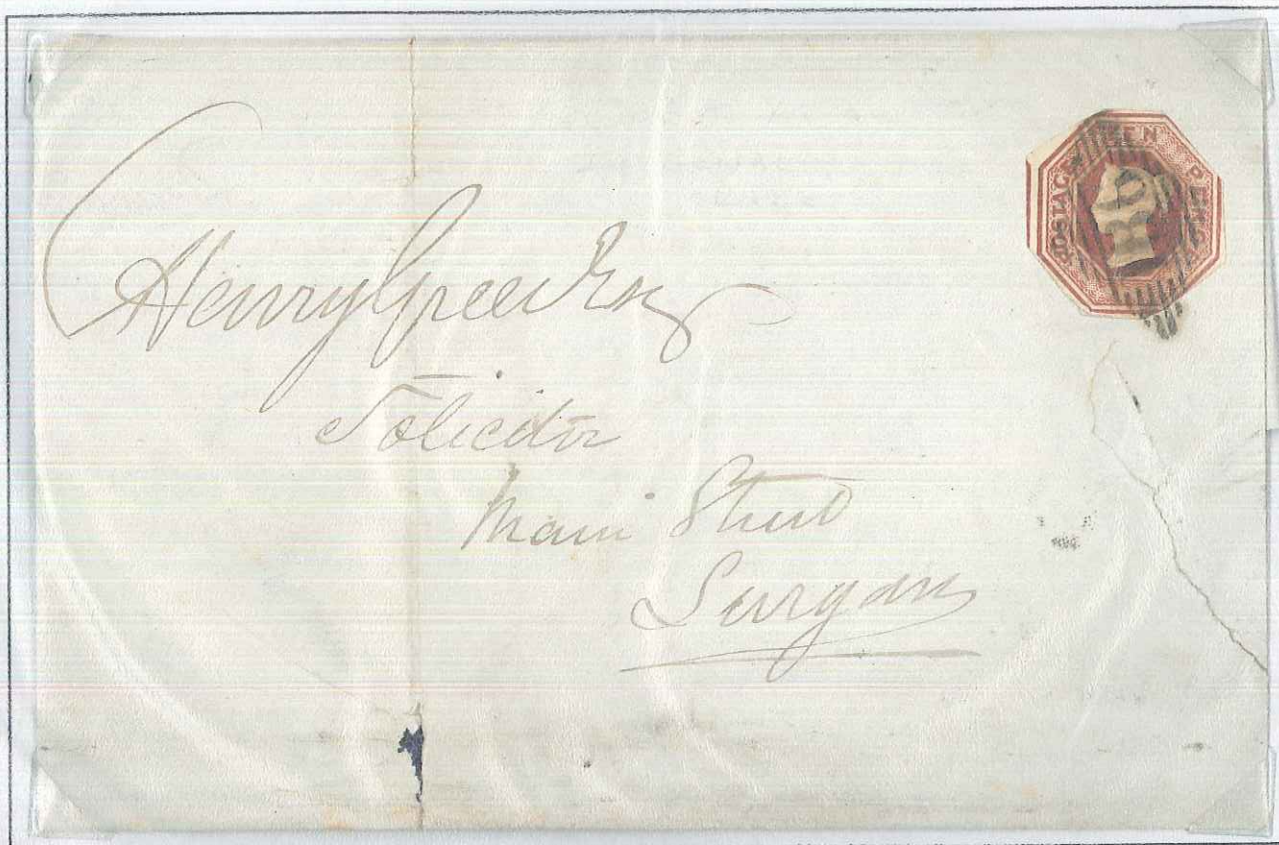 POSTAGE TEN PENCE
B6
Henry Greer Esq
Solicitor
Main Street
Lurgan